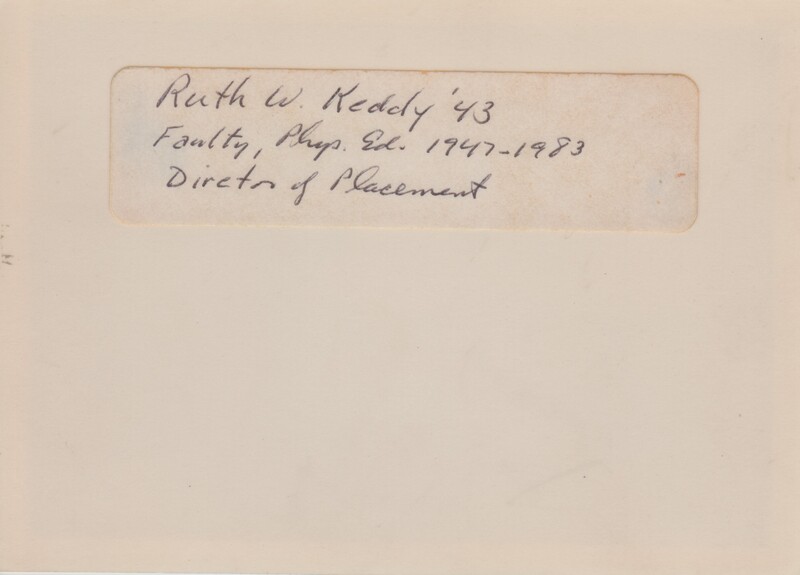 Ruth W. Keddy '43
Faulty, Phys. Ed. 1947-1983
Director of Placement